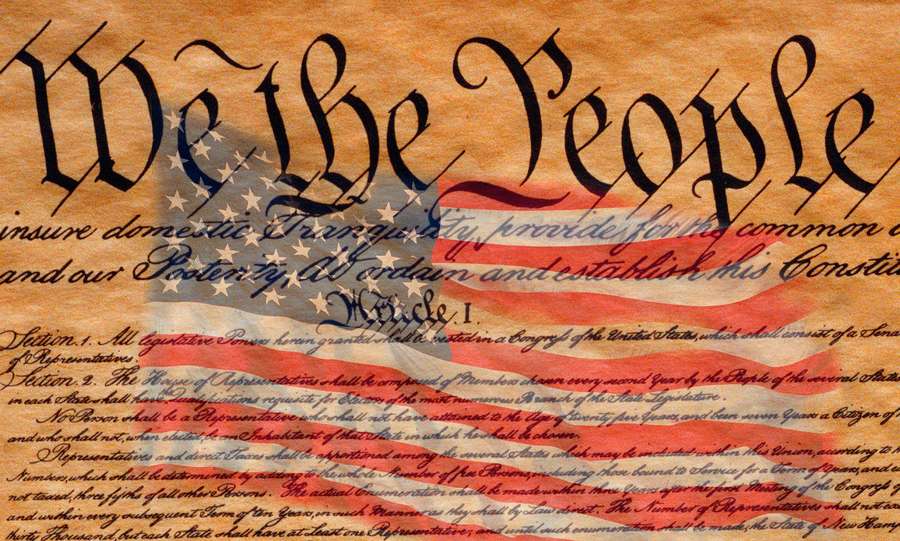 We the People
insure domestic Tranquility, provide for the common
and our Posterity, do ordain and establish this Constitu
Article. I.
Section. 1. All legislative Powers herein granted shall be vested in a Congreſs of the United States, which shall consist of a Sena
of Representatives.
Section. 2. The House of Representatives shall be composed of Members chosen every second Year by the People of the several States
in each State shall have Qualifications requisite for Electors of the most numerous Branch of the State Legislature.
No Person shall be a Representative who shall not have attained to the Age of twenty five Years, and been seven Years a Citizen of
and who shall not, when elected, be an Inhabitant of that State in which he shall be chosen.
Representatives and direct Taxes shall be apportioned among the several States which may be included within this Union, according to
Number, which shall be determined by adding to the whole Number of free Persons, including those bound to Service for a Term of Years, and
not taxed, three fifths of all other Persons. The actual Enumeration shall be made within three Years after the first Meeting of the Congreſs of
and within every subsequent Term of ten Years, in such Manner as they shall by Law direct. The Number of Representatives shall not
thirty Thousand, but each State shall have at Least one Representative; and until such enumeration shall be made, the State of New Hamp